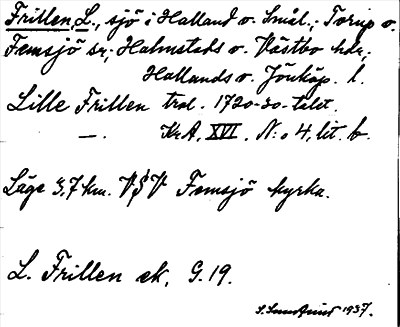 Frillen, L., sjö i Halland o. Smål.; Torup o.
Femsjö sn; Halmstads o. Västbo hdr;
Hallands o. Jönköp. l.
Lille Frillen trol. 1720-30-talet.
— . KrA, XVI. N:o 4, lit. b.
Läge 3,7 km. VSV Femsjö kyrka.
L. Frillen ek. G.19.
S. Sundquist 1937.